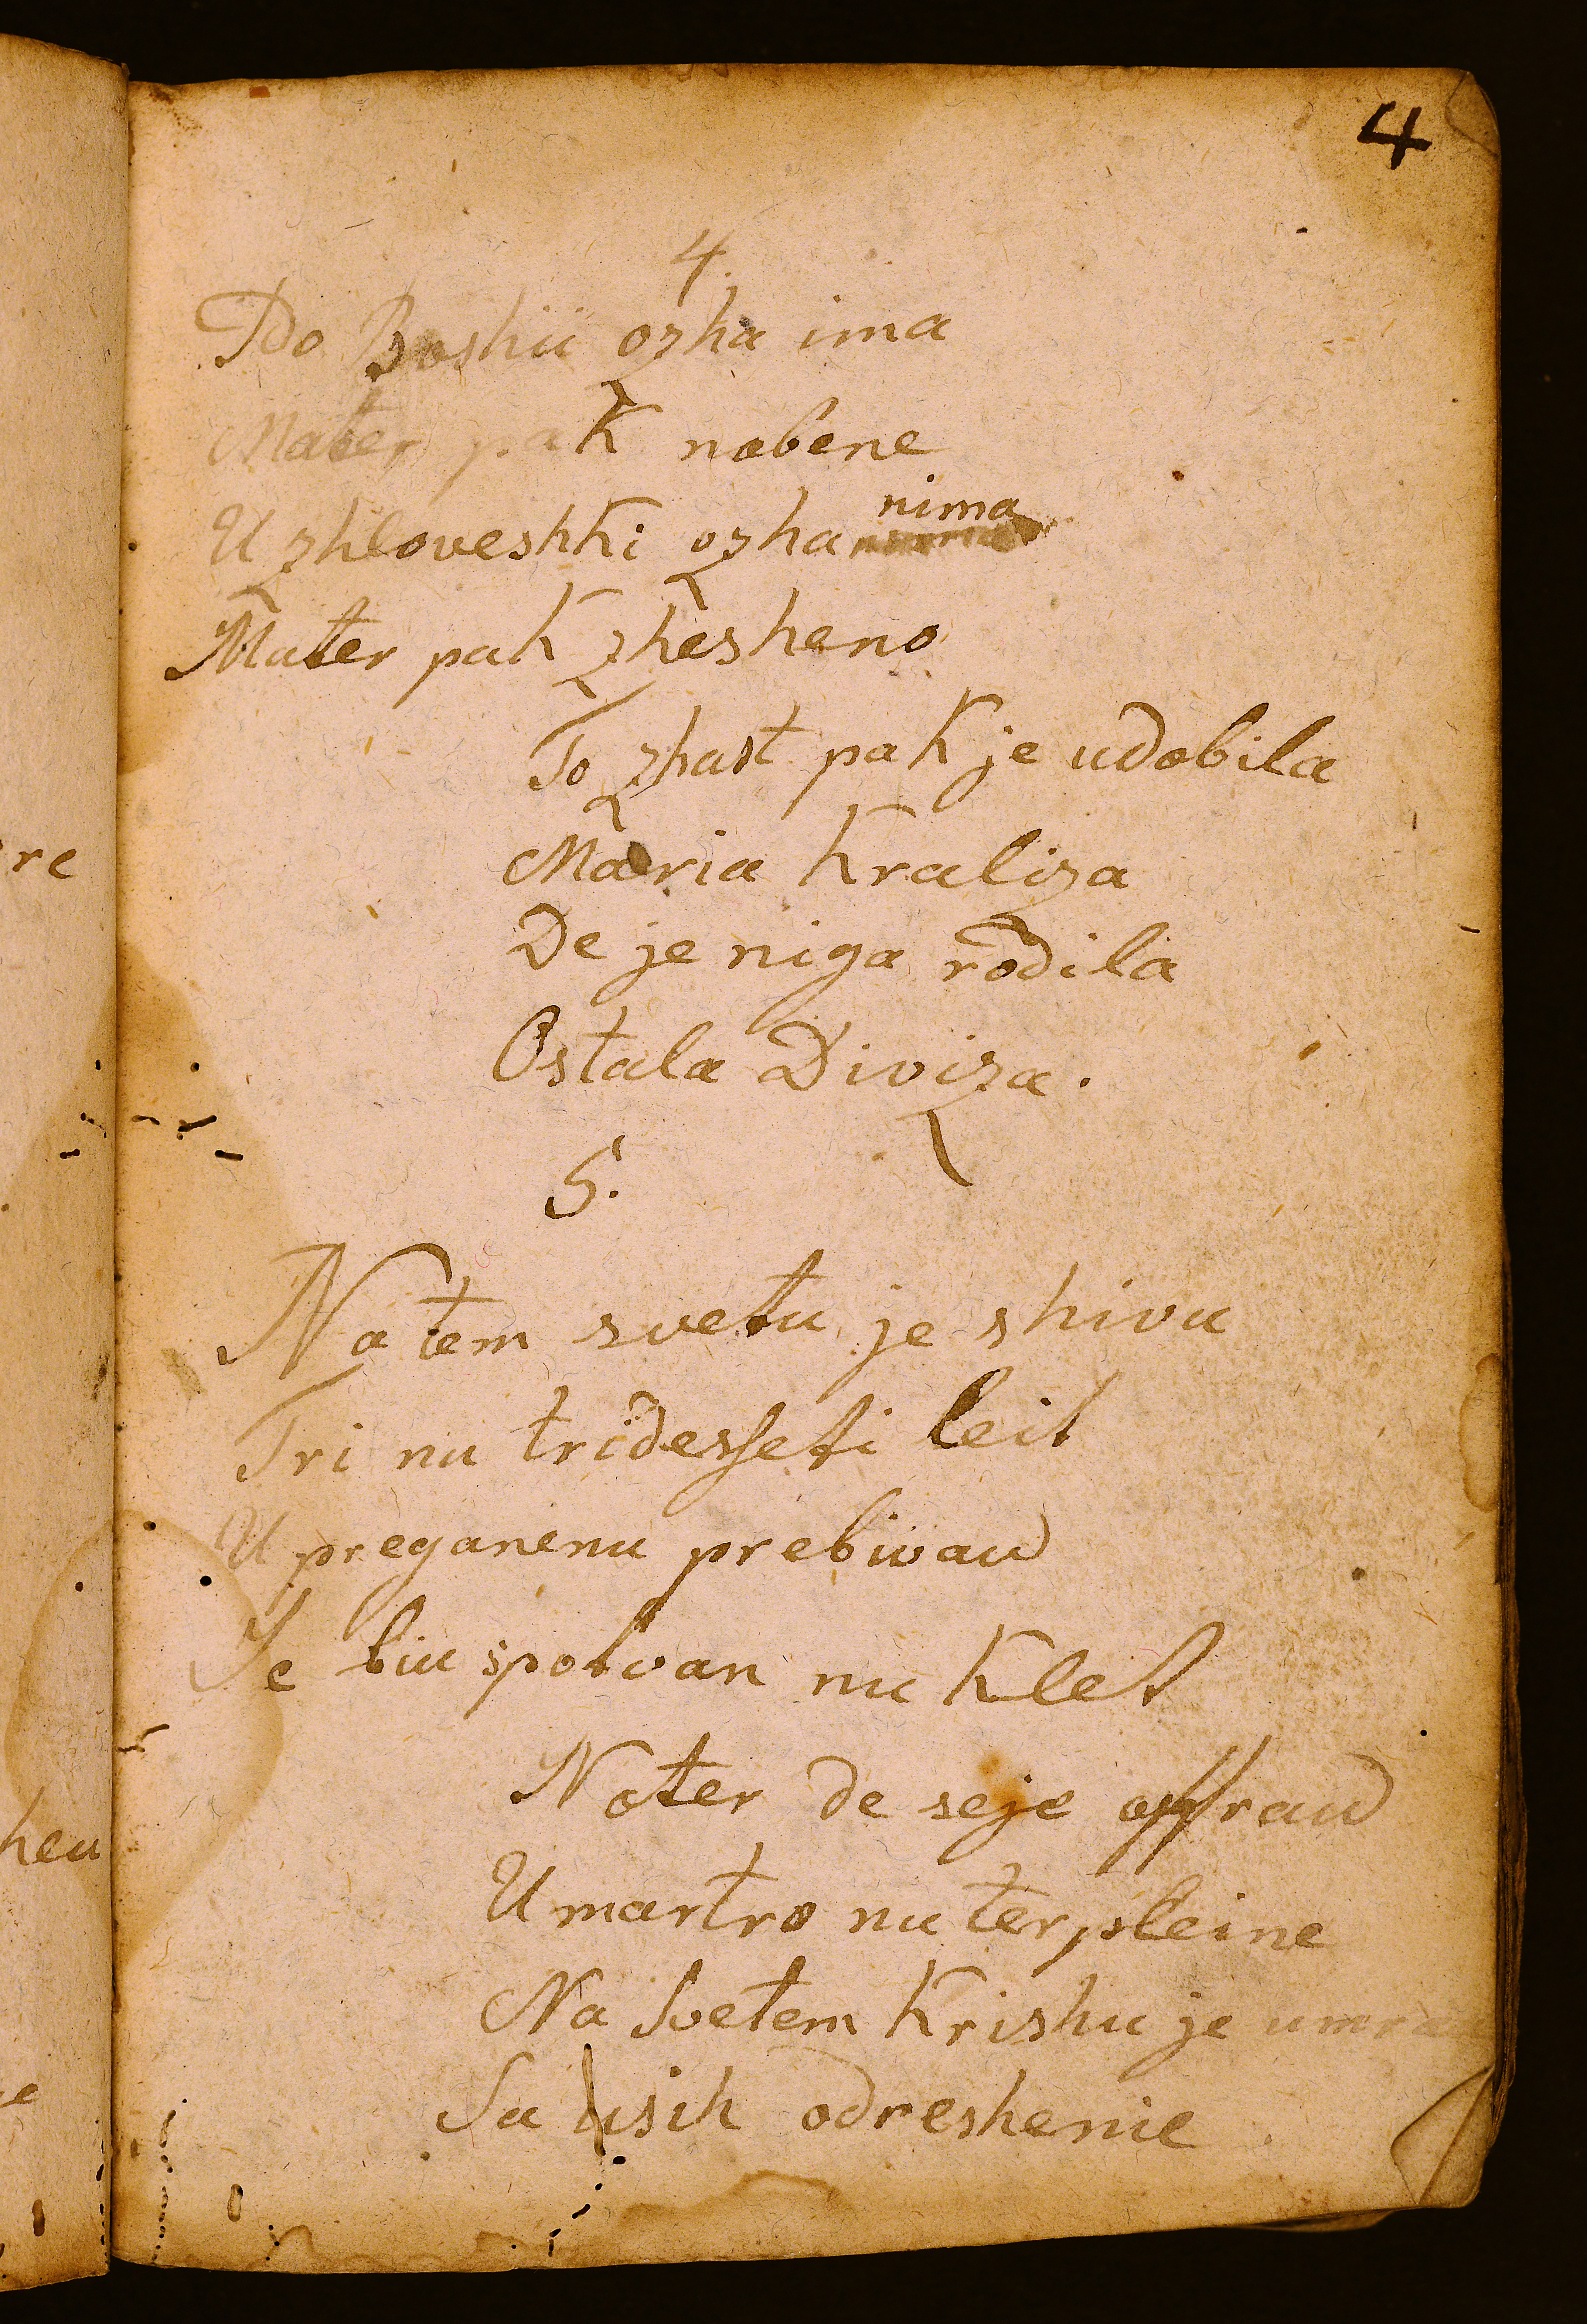 4
4.
Po Boshii ozha ima
Mater pak nobene
U zhloveshki ozha nima
Mater pak zhesheno
To zhast pak je udobila
Maria Kraliza
De je niga rodila
Ostala Diviza.
5.
Na tem svetu je shivu
Tri nu tridesseti leit
U preganenu prebivau
Je biu spotvan nu klet
Noter de seje offrau
U martro nu terpleine
Na svetem Krishu je umrau
Sa usih odreshenie
re
heu
e